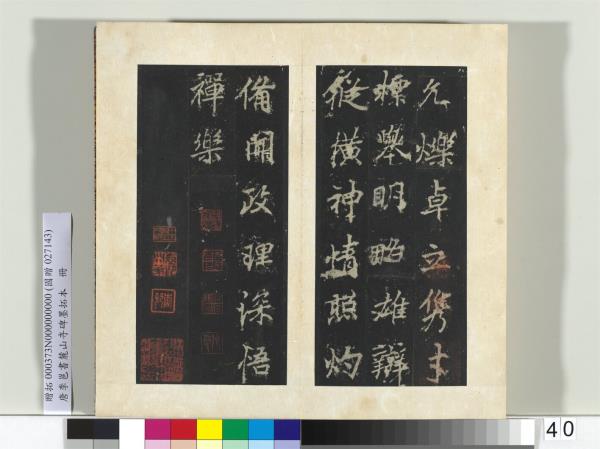 允爍卓立儁才
標舉明略雄辯
縱橫神情照灼
備聞政理深悟
禪樂
贈拓 000373N000000000 (國贈 027143)
唐李邕書麓山寺碑墨拓本 冊
40